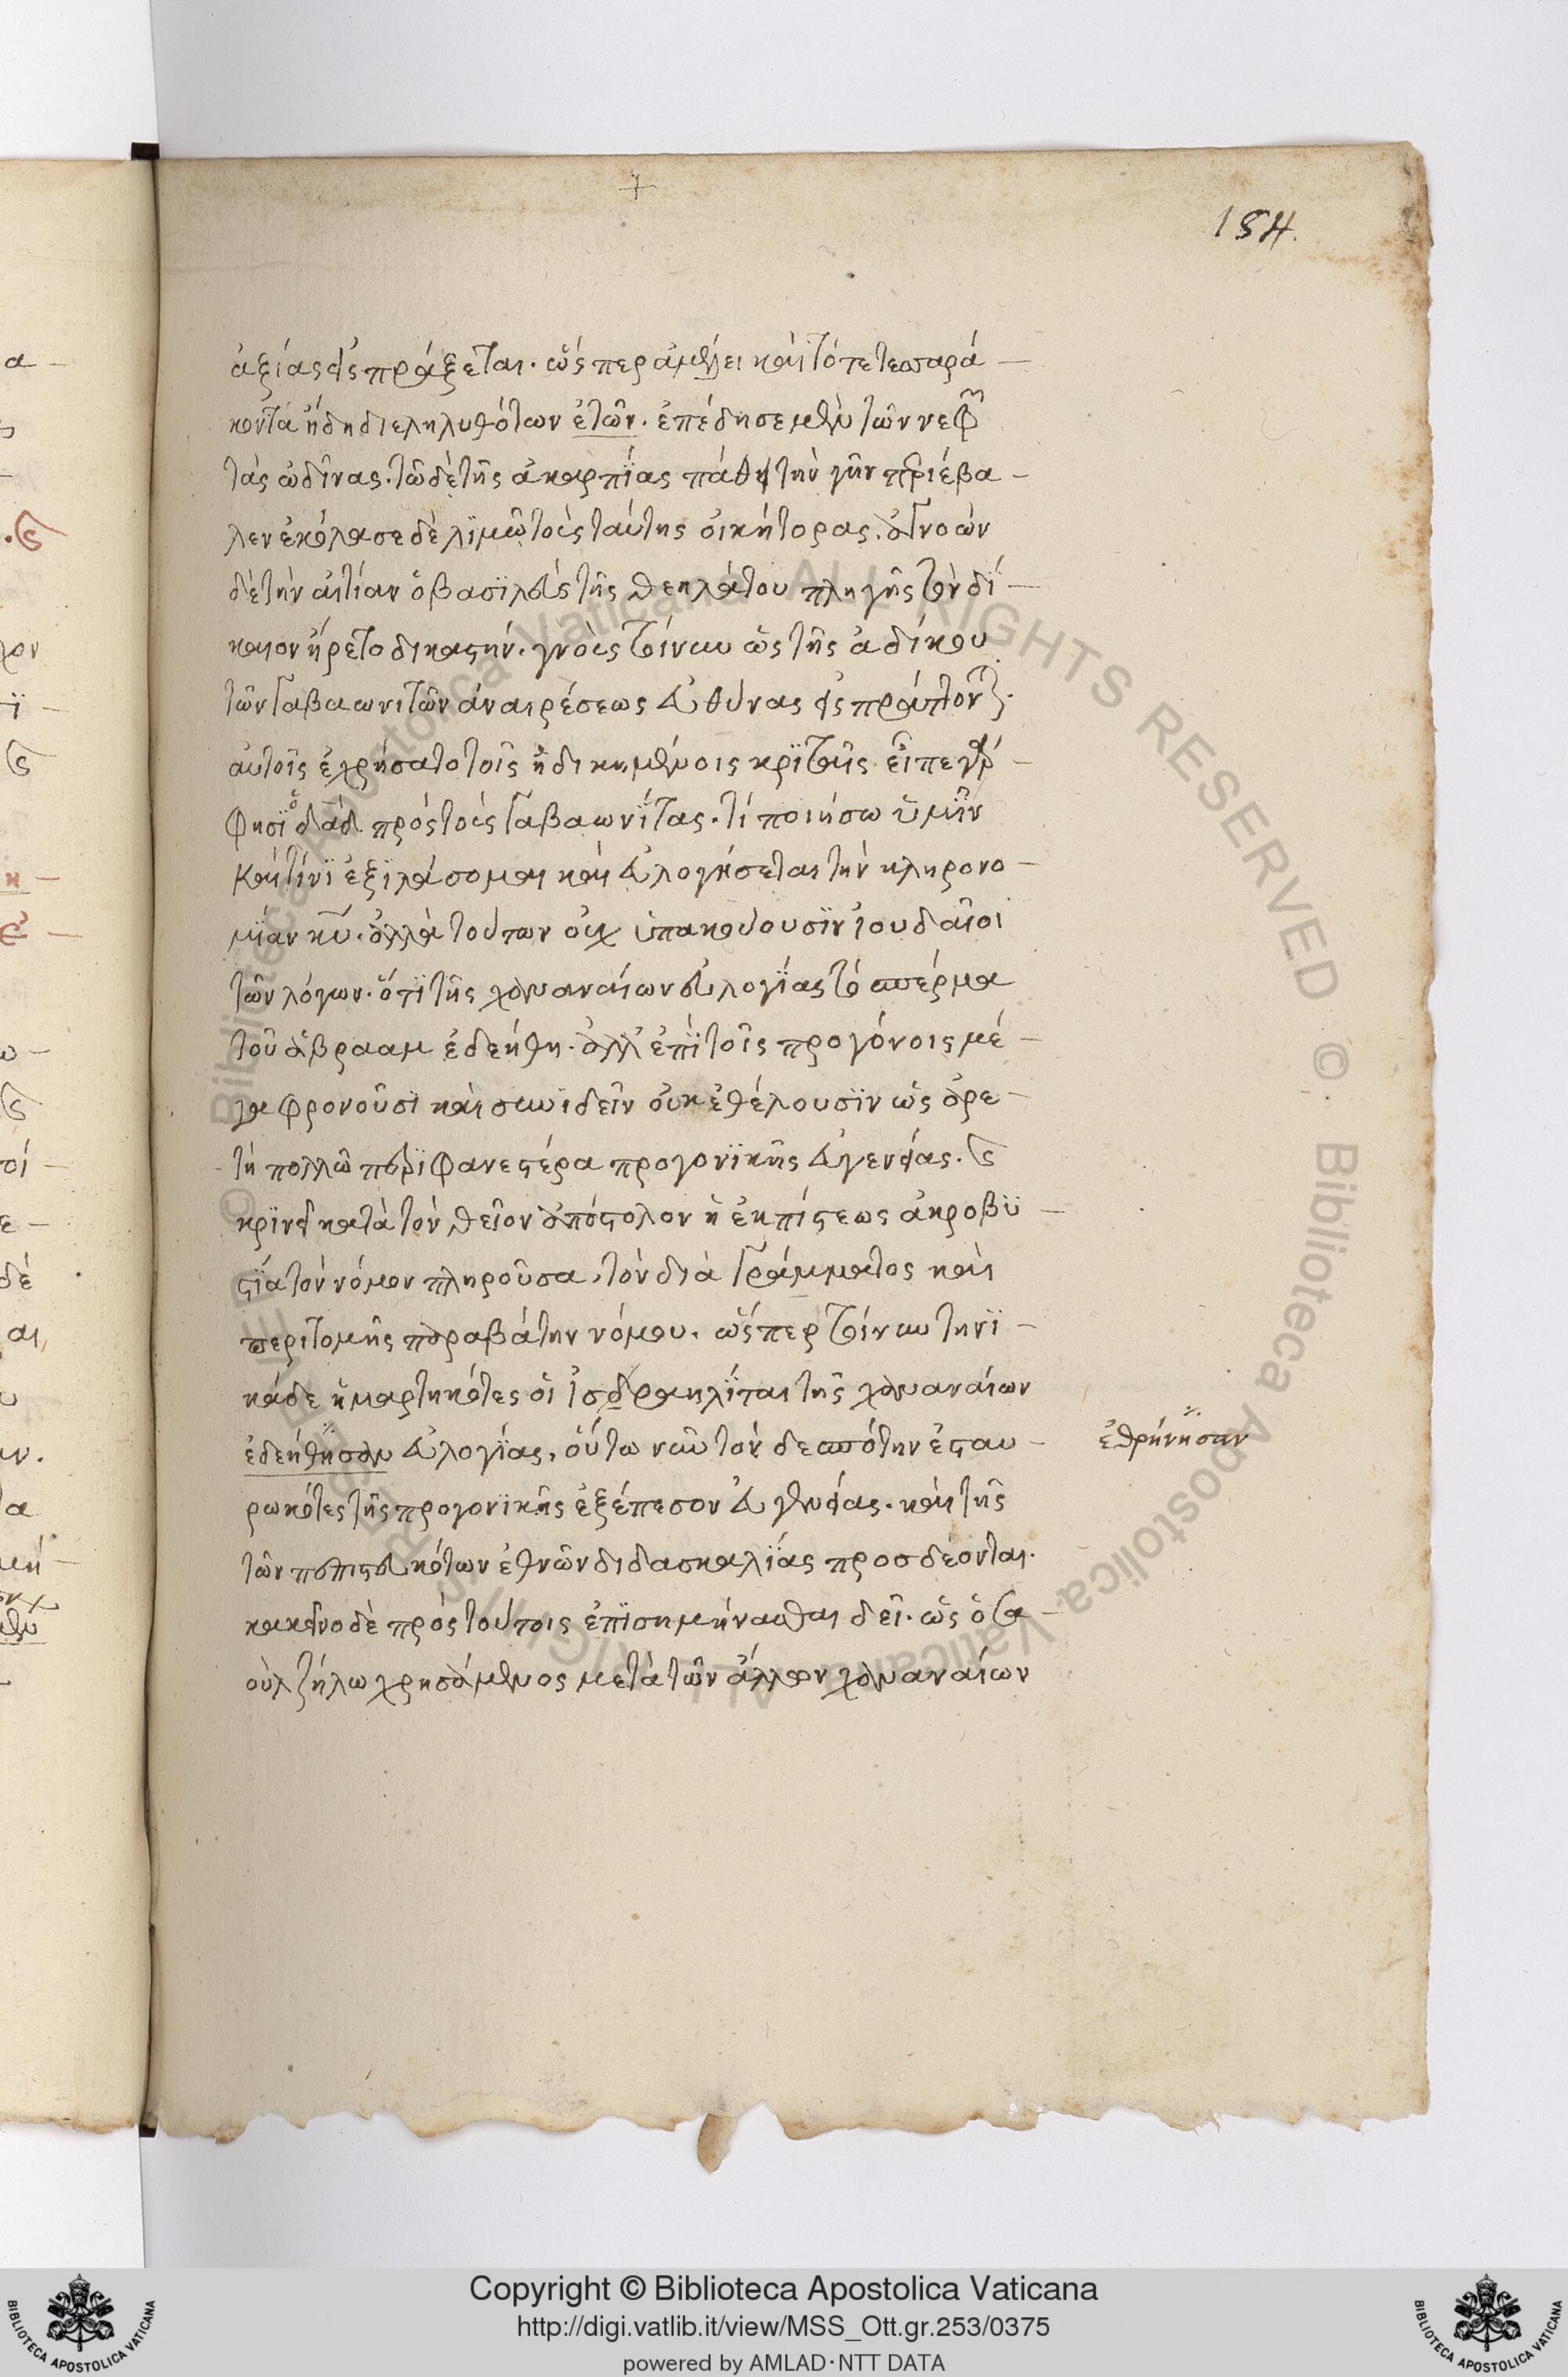 184.
ἀξίας εἰσπράξεται. ὥσπερ ἀμέλει καὶ τότε τεσσαρά
κοντα ἤδη διεληλυθότων ἐτῶν. ἐπέδησε μὲν τῶν νεφῶν
τὰς ὠδῖνας. τῶ δὲ τῆς ἀκαρπΐας πάθει τὴν γῆν περιέβα
λεν ἐκόλασε δὲ λϊμῶ τοὺς ταύτης οἰκήτορας. ἀγνοῶν
δὲ τὴν αἰτίαν ὁ βασϊλεὺς τῆς θεηλάτου πληγῆς τὸν δί
καιον ἤρετο δικαστήν. γνοὺς τοίνυν ὡς τῆς ἀδίκου
τῶν Γαβαωνιτῶν ἀναιρέσεως εὐθύνας εἰσπράττονται.
αὐτοῖς ἐχρήσατο τοῖς ἠδικημένοις κρϊταῖς εἶπε γάρ
φησϊ ὁ δᾱδ πρὸς τοὺς Γαβαωνΐτας. τί ποιήσω ὑμῖν
καὶ τίνϊ ἐξϊλάσομαι καὶ εὐλογήσεται τὴν κληρονο
μΐαν κῡ. ἀλλὰ τούτων οὐχ ὑπακούουσϊν ἰουδαῖοι
τῶν λόγων. ὅτϊ τῆς χαναναίων εὐλογΐας τὸ σπέρμα
τοῦ ἀβραὰμ ἐδεήθη. ἀλλ' ἐπὶ τοῖς προγόνοις μέ
γα φρονοῦσϊ καὶ συνϊδεῖν οὐκ ἐθέλουσϊν ὡς ἀρε
τὴ πολλῶ περϊφανεστέρα προγονϊκῆς εὐγενείας. ς
κρϊνεῖ κατὰ τὸν θεῖον ἀπόστολον ἡ ἐκ πίστεως ἀκροβϋ
στΐα τὸν νόμον πληροῦσα, τὸν διὰ Γράμματος καὶ
περιτομῆς παραβάτην νόμου. ὥσπερ τοίνυν τηνϊ
κάδε ἡμαρτηκότες οἱ ἰσδραηλῖται τῆς χαναναίων
ἐδεήθησαν εὐλογΐας, οὕτω νῦν τὸν δεσπότην ἐσταυ
ἐθρήνησαν
ρωκότες τῆς προγονϊκῆς ἐξέπεσον εὐγενείας. καὶ τῆς
τῶν πεπιστευκότων ἐθνῶν διδασκαλΐας προσδέονται.
κακεῖνο δὲ πρὸς τούτοις ἐπϊσημήνασθαι δεῖ. ὡς ὁ σα
οὺλ ζήλω χρησάμενος μετὰ τῶν ἄλλων χαναναίων
Copyright © Biblioteca Apostolica Vaticana
http://digi.vatlib.it/view/MSS_Ott.gr.253/0375
powered by AMLAD·NTT DATA